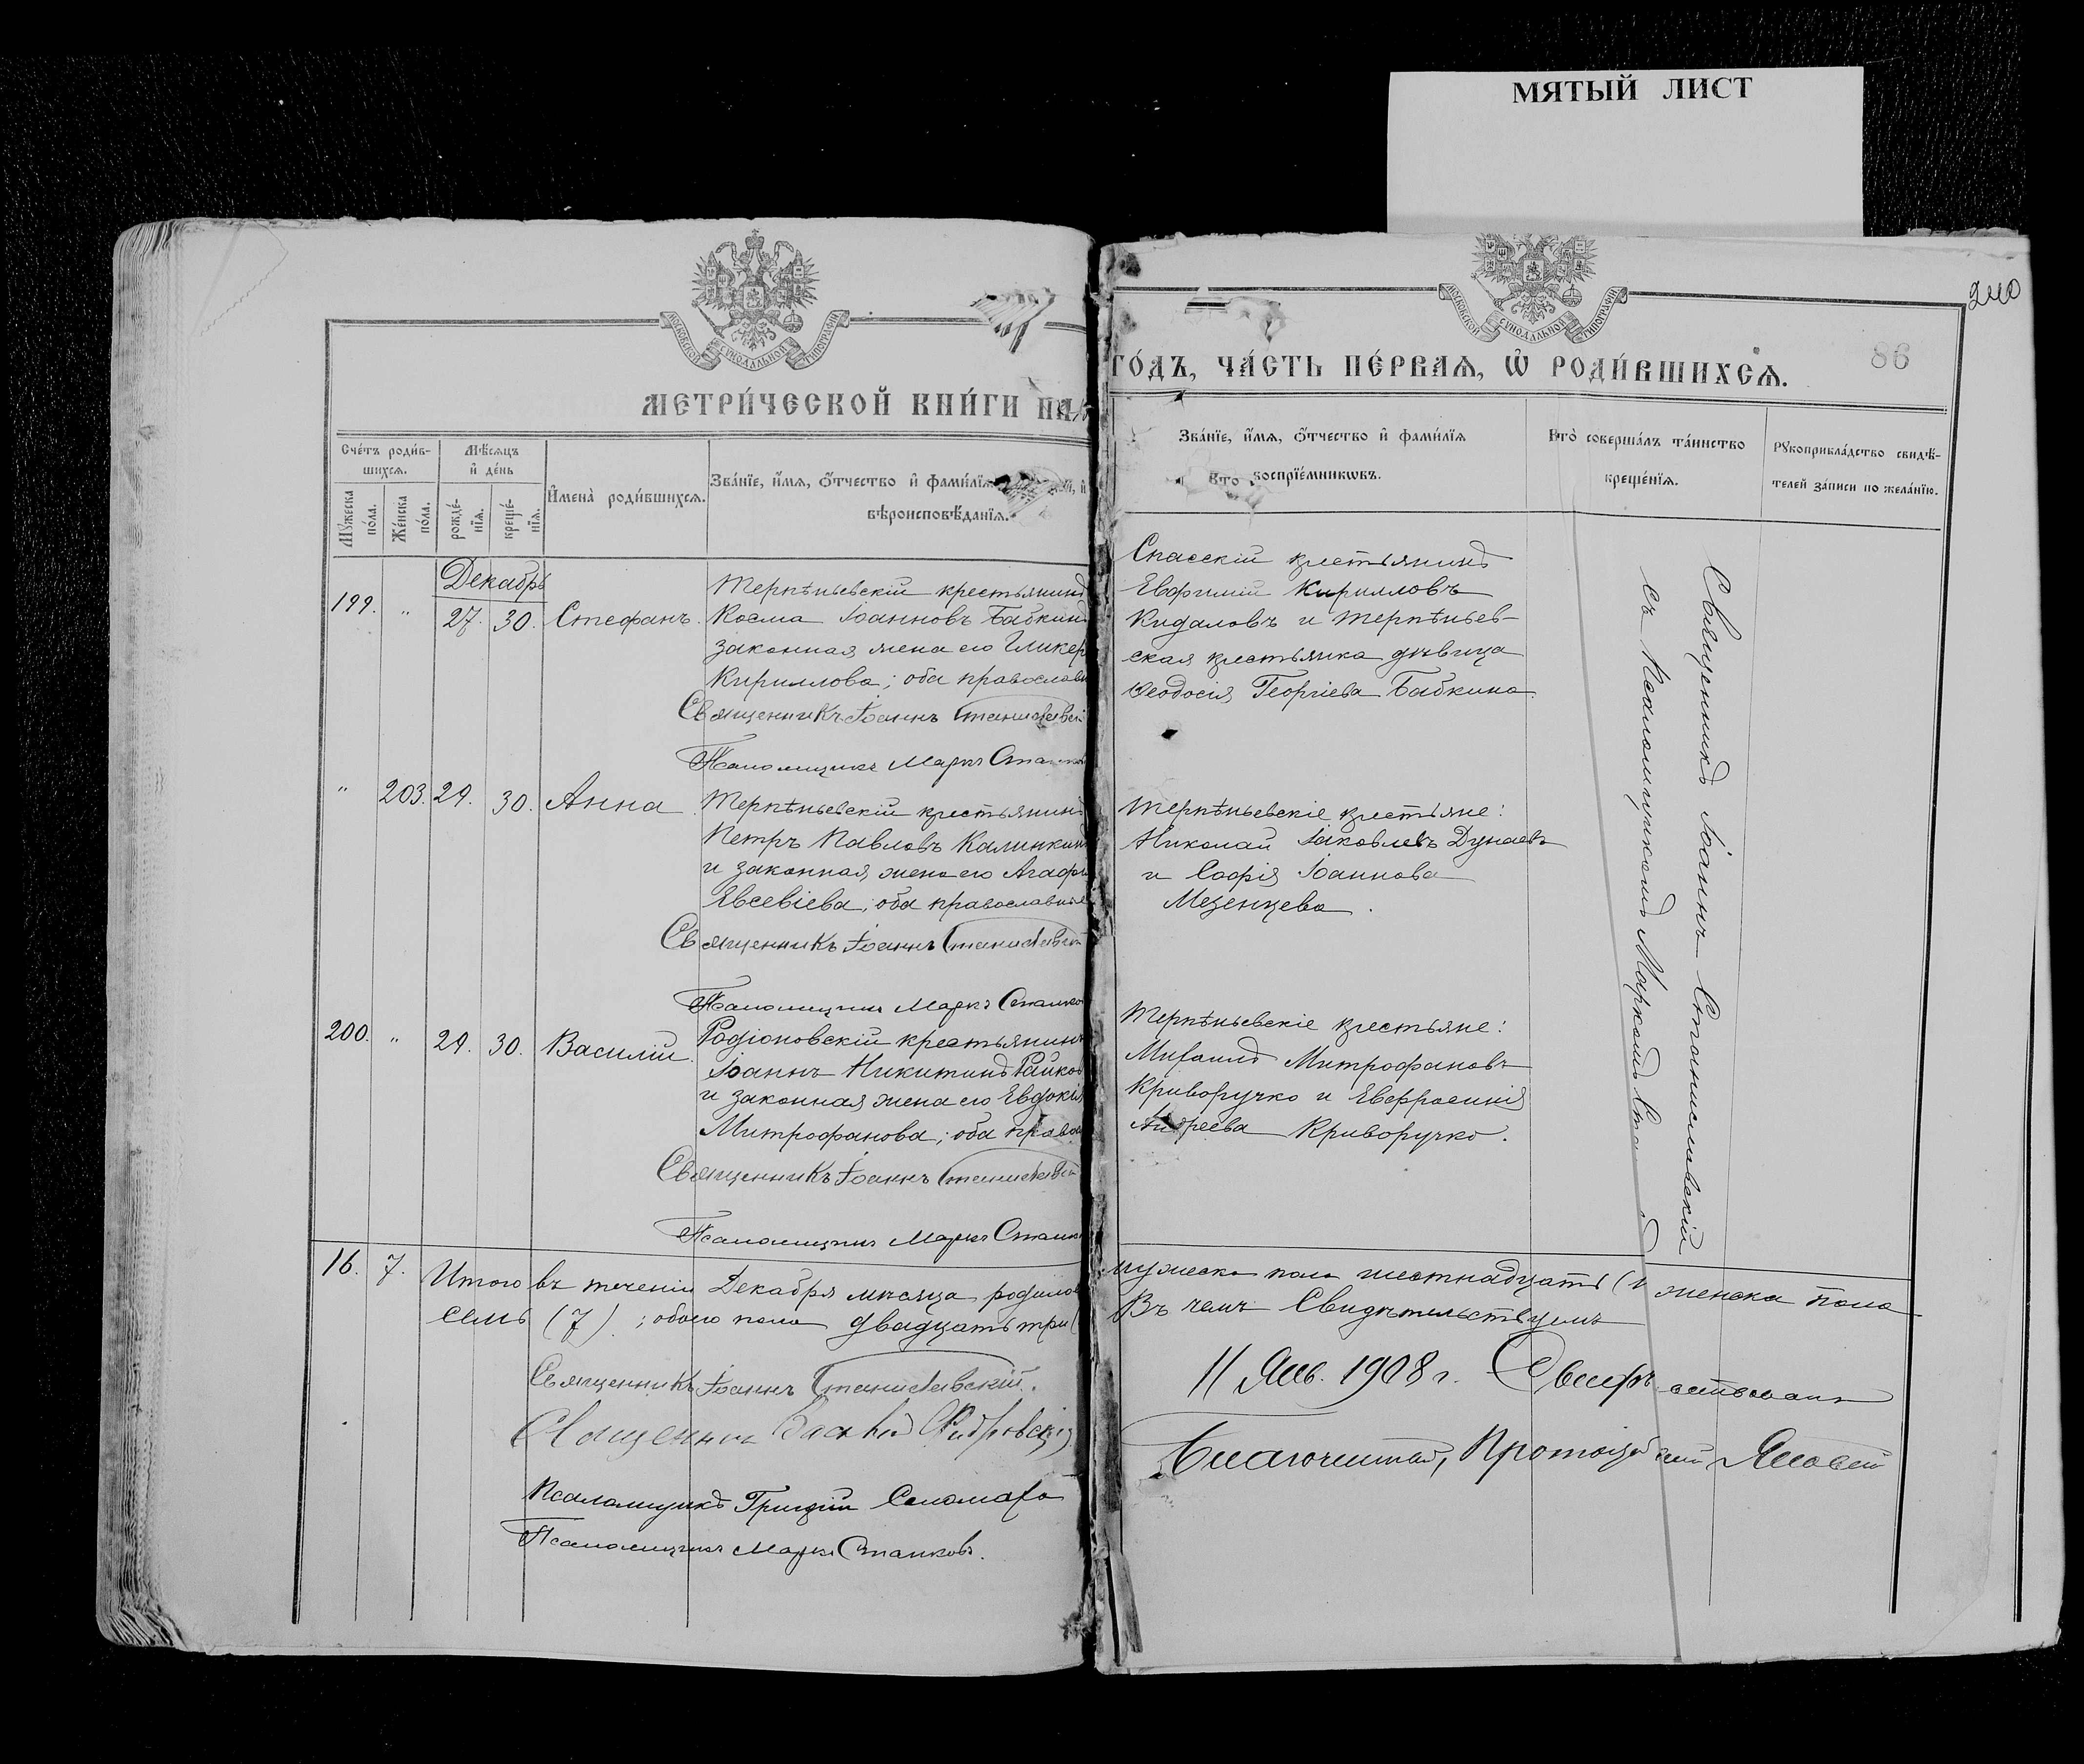 МЯТЫЙ ЛИСТ
МОСКОВСКОЙ СѴНОДАЛЬНОЙ ТИПОГРАФІИ
МЕТРИ́ЧЕСКОЙ КНИ́ГИ НА
Сче́тъ роди́в-
шихсѧ.
Мꙋ́жеска
по́ла.
Же́нска
по́ла.
Мѣ́сѧцъ
и҆ де́нь
рожде́-
нїѧ.
креще́-
нїѧ.
И҆мена̀ роди́вшихсѧ.
Зва́нїе, и҆́мѧ, ѻ҆́тчество и҆ фамилїѧ
вѣроисповѣ́данїѧ.
Декабрь
199. " 27. 30. Стефанъ.
Терпѣньевскій крестьянинъ
Косма Іоанновъ Бабкинъ
законная жена его Гликер
Кириллова; оба православн
Священникъ Іоаннъ Станиславскі
Псаломщикъ Маркъ Станк
" 203. 29. 30. Анна.
Терпѣньевскій крестьянинъ
Петръ Павловъ Калинкин
и законная жена его Агафі
Евсевіева; оба православные
Священникъ Іоаннъ Станиславскі
Псаломщикъ Маркъ Станко
200. " 29. 30. Василій.
Родіоновскій крестьянинъ
Іоаннъ Никитинъ Райков
и законная жена его Евдокія
Митрофанова; оба право
Священникъ Іоаннъ Станиславскі
Псаломщикъ Маркъ Станк
16. 7. Итого въ теченіи Декабря мѣсяца родилос
семь (7); обоего пола двадцать три (
Священникъ Іоаннъ Станиславскій.
Священникъ
Псаломщикъ Григорій Соломаха
Псаломщикъ Маркъ Станковъ.
240
МОСКОВСКОЙ СѴНОДАЛЬНОЙ ТИПОГРАФІИ
ГО́ДЪ, ЧА́СТЬ ПЕ́РВАѦ, Ѡ҆ РОДИ́ВШИХСѦ.
86
Зва́нїе, и҆́мѧ, ѻ҆́тчество и҆ фами́лїѧ
воспрїе́мникѡвъ.
Кто̀ соверша́лъ та́инство
креще́нїѧ.
Рꙋкоприкла́дство свидѣ́-
телей за́писи по жела́нїю.
Спасскій крестьянинъ
Евфимій Кирилловъ
Кидаловъ и Терпѣньев-
ская крестьянка дѣвица
Ѳеодосія Георгіева Бабкина.
Терпѣньевскіе крестьяне:
Николай Іаковлевъ Дунаевъ
и Софія Іоаннова
Мезенцева.
Терпѣньевскіе крестьяне:
Михаилъ Митрофановъ
Криворучко и Евфросинія
Андреева Криворучко.
Священникъ Іоаннъ Станиславскій
съ Псаломщикомъ Маркомъ Ста
мужеска пола шестнадцать (1 женска пола
Въ чемъ Свидѣтельствуемъ
11 Янв. 1908 г.
Благочинный, Протоіерей